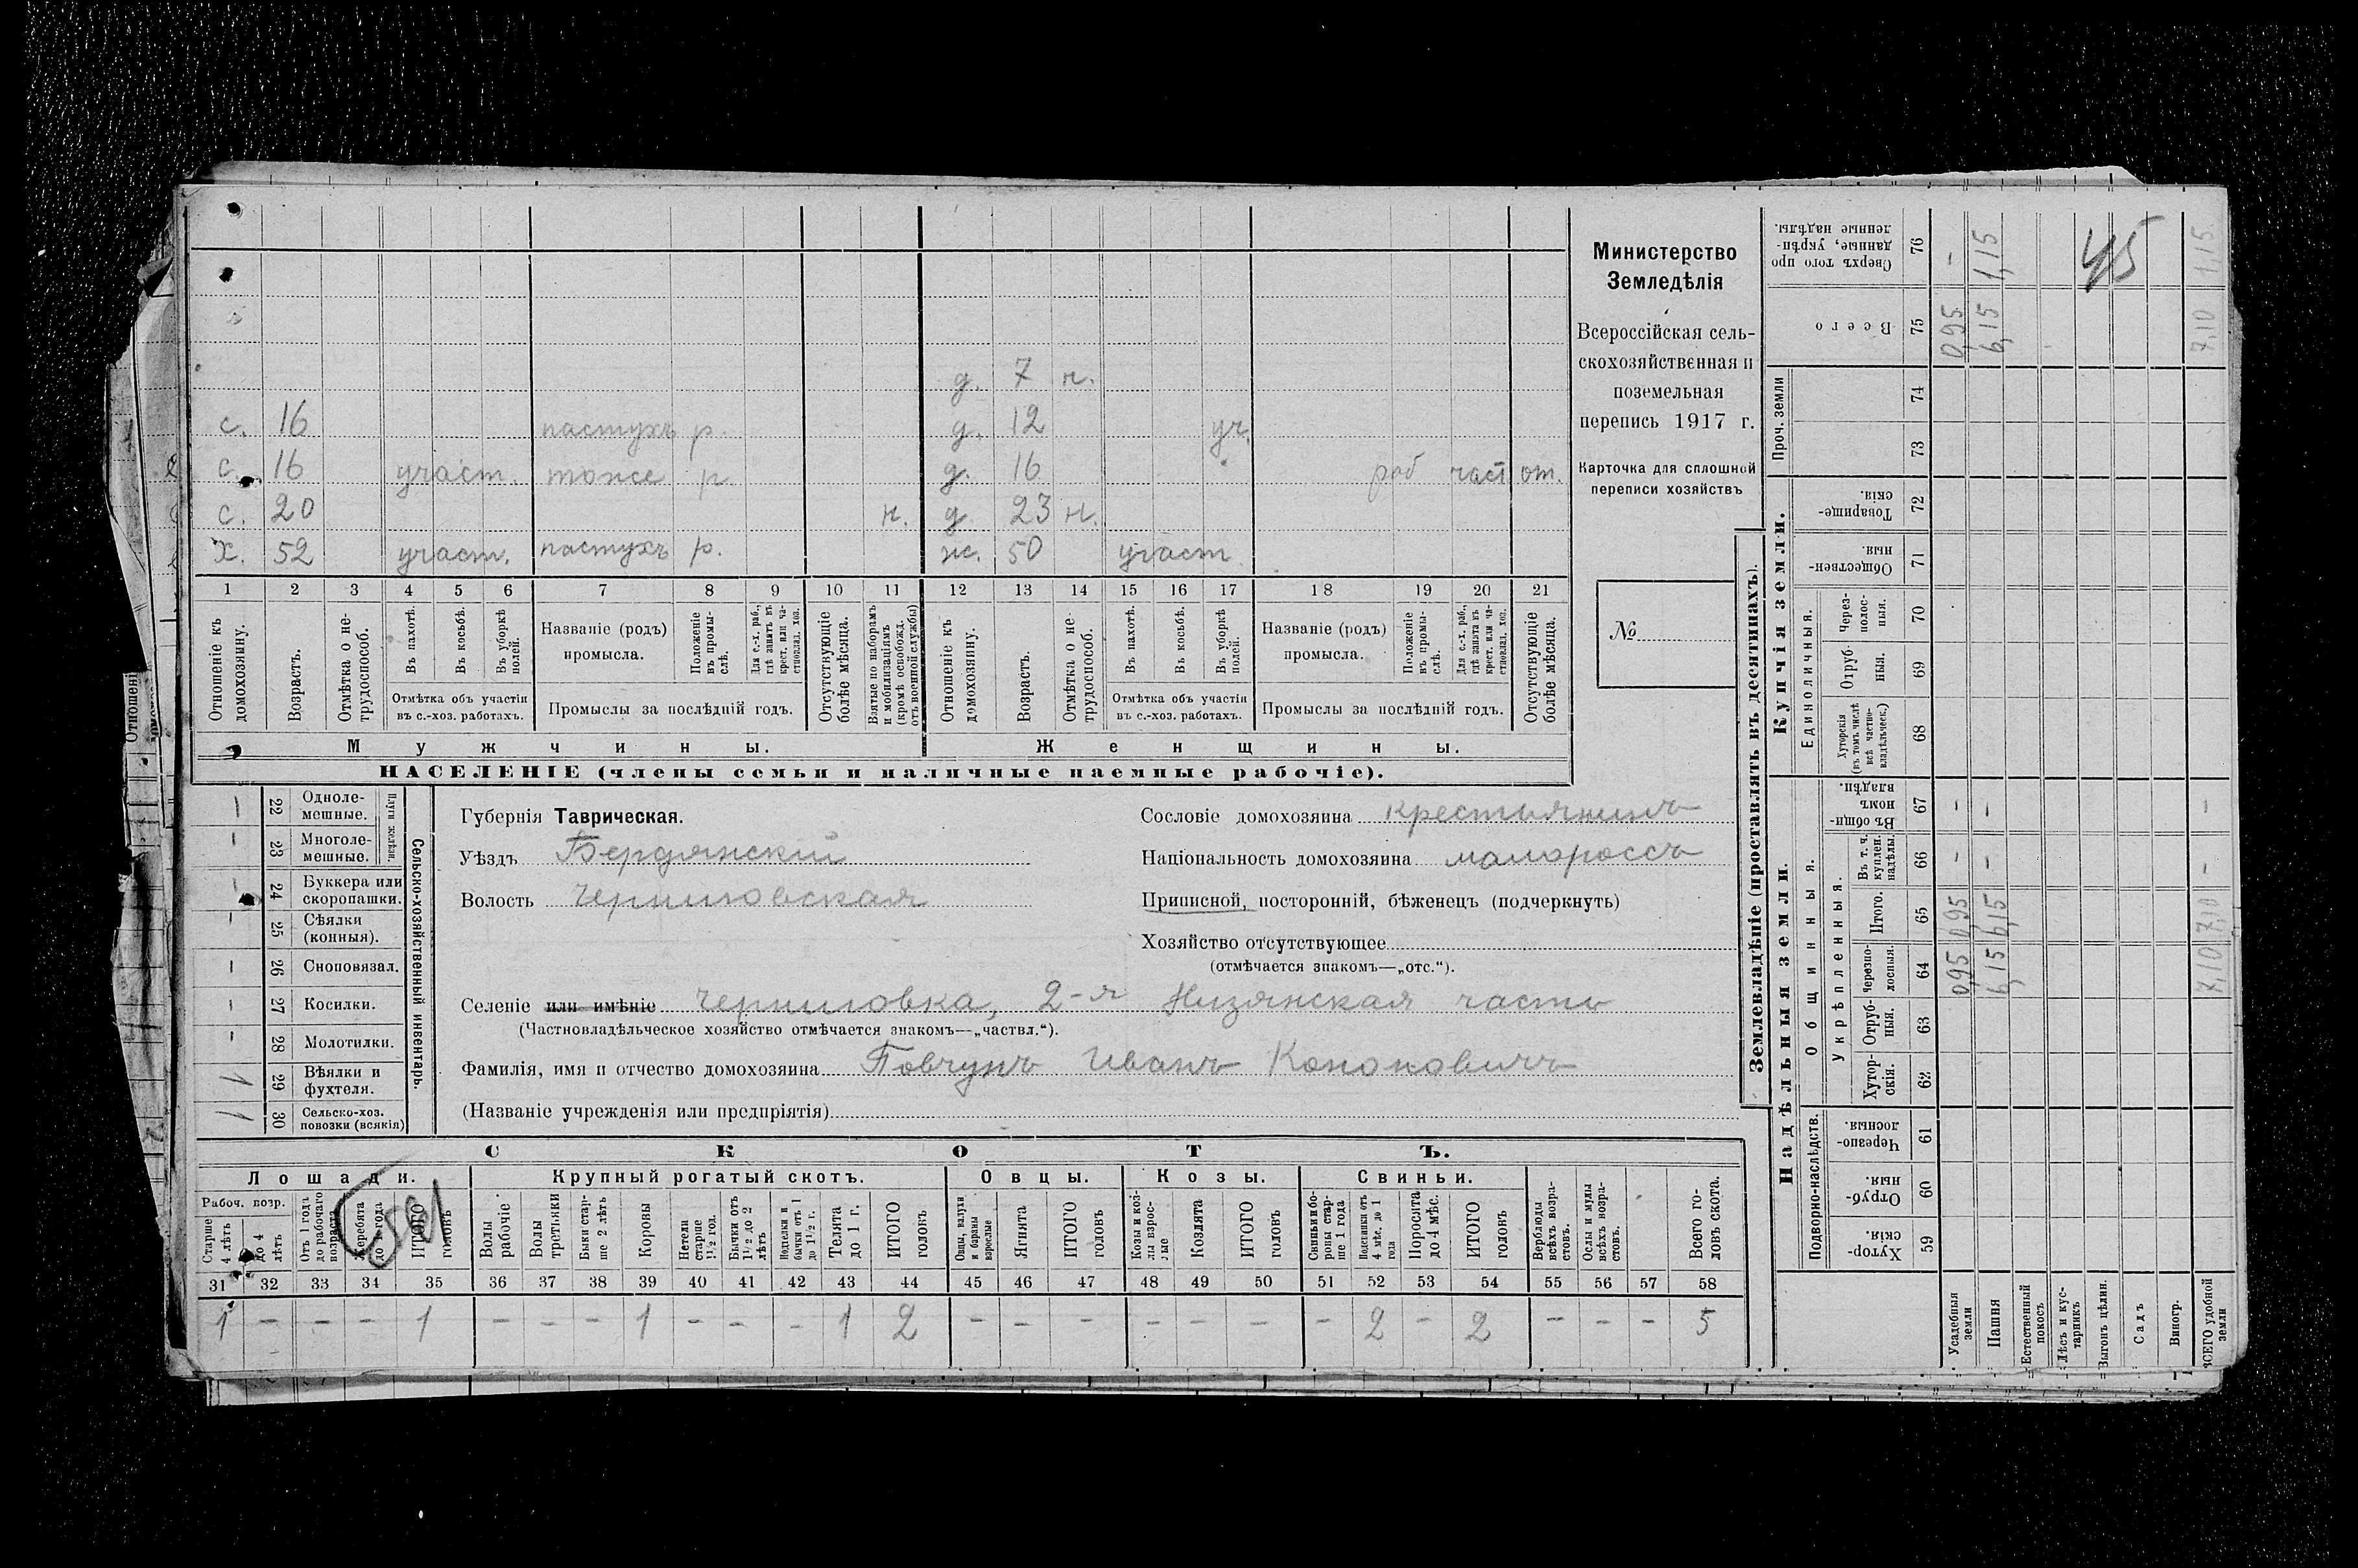 Министерство
Земледѣлія
Всероссійская сель-
скохозяйственная и
поземельная
перепись 1917 г.
Карточка для сплошной
переписи хозяйствъ
№
д. 7 н.
с. 16 пастухъ р. д. 12 уч.
с. 16 участ. тоже р. д. 16 раб част от.
с. 20 н. д. 23 н.
х. 52 участ. пастухъ р. ж. 50 участ.
1 2 3 4 5 6 7 8 9 10 11 12 13 14 15 16 17 18 19 20 21
Отношеніе къ домохозяину.
Возрастъ.
Отмѣтка о не-трудоспособ.
Въ пахотѣ.
Въ косьбѣ.
Въ уборкѣ полей.
Отмѣтка объ участіи
въ с.-хоз. работахъ.
Названіе (родъ)
промысла.
Положеніе въ промы-слѣ.
Для с.-х. раб., гдѣ занятъ въ крест. или ча-стновлад. хоз.
Промыслы за послѣдній годъ.
Отсутствующіе болѣе мѣсяца.
Взятые по наборамъ и мобилизаціямъ (кромѣ освобожд. отъ военной службы)
Отношеніе къ домохозяину.
Возрастъ.
Отмѣтка о не-трудоспособ.
Въ пахотѣ.
Въ косьбѣ.
Въ уборкѣ полей.
Отмѣтка объ участіи
въ с.-хоз. работахъ.
Названіе (родъ)
промысла.
Положеніе въ промы-слѣ.
Для с.-х. раб., гдѣ занята въ крест. или ча-стновлад. хоз.
Промыслы за послѣдній годъ.
Отсутствующіе болѣе мѣсяца.
Мужчины. Женщины.
НАСЕЛЕНІЕ (члены семьи и наличные наемные рабочіе).
Сельско-хозяйственный инвентарь.
Плуги желѣзн.
– 22 Одноле-мешные.
– 23 Многоле-мешные.
– 24 Буккера или скоропашки.
– 25 Сѣялки (конныя).
– 26 Сноповязал.
– 27 Косилки.
– 28 Молотилки.
1 29 Вѣялки и фухтеля.
1 30 Сельско-хоз. повозки (всякія)
Губернія Таврическая.
Уѣздъ Бердянскій
Волость Черниговская
Сословіе домохозяина крестьянинъ
Національность домохозяина малороссъ
Приписной, посторонній, бѣженецъ (подчеркнуть)
Хозяйство отсутствующее
(отмѣчается знакомъ—„отс.“).
Селеніе или имѣніе Черниговка, 2-я Низянская часть
(Частновладѣльческое хозяйство отмѣчается знакомъ—„частвл.“).
Фамилія, имя и отчество домохозяина Повчунъ Иванъ Кононовичъ
(Названіе учрежденія или предпріятія)
СКОТЪ.
Лошади. Крупный рогатый скотъ. Овцы. Козы. Свиньи.
Рабоч. возр.
Старше 4 лѣтъ
до 4 лѣтъ
Отъ 1 года до рабочаго возраста
Жеребята до 1 года
ИТОГО головъ
Волы рабочіе
Волы третьяки
Быки стар-ше 2 лѣтъ
Коровы
Нетели старше 1½ год.
Бычки отъ 1½ до 2 лѣтъ
Нетели и бычки отъ 1 до 1½ г.
Телята до 1 г.
ИТОГО головъ
Овцы, валухи и бараны взрослые
Ягнята
ИТОГО головъ
Козы и коз-лы взрос-лые
Козлята
ИТОГО головъ
Свиньи и бо-ровы стар-ше 1 года
Подсвинки отъ 4 мѣс. до 1 года
Поросята до 4 мѣс.
ИТОГО головъ
Верблюды всѣхъ возра-стовъ.
Ослы и мулы всѣхъ возра-стовъ.
Всего го-ловъ скота.
31 32 33 34 35 36 37 38 39 40 41 42 43 44 45 46 47 48 49 50 51 52 53 54 55 56 57 58
1 – – – 1 – – – 1 – – – 1 2 – – – – – – – 2 – 2 – – – 5
Землевладѣніе (проставлять въ десятинахъ).
Купчія земли.
Надѣльныя земли.
Проч. земли
Единоличныя.
Общинныя.
Укрѣпленныя.
Подворно-наслѣдств.
Сверхъ того про данные, укрѣп-ленные надѣлы. 76 – 1,15 1,15
45
Всего 75 0,95 6,15 7,10
74
73
Товарище-скія. 72
Обществен-ныя. 71
Через-полос-ныя. 70
Отруб-ныя. 69
Хуторскія (въ томъ числѣ всѣ частно-владѣльческ.) 68
Въ общи-номъ владѣн. 67 – – –
Въ т. ч. куплен. надѣлы 66 – – –
Итого. 65 0,95 6,15 7,10
Черезпо-лосныя 64 0,95 6,15 7,10
Отруб-ныя. 63
Хутор-скія. 62
Черезпо-лосныя. 61
Отруб-ныя. 60
Хутор-скія. 59
Усадебныя земли
Пашня
Естественный покосъ
Лѣсъ и кус-тарникъ
Выгонъ цѣлин.
Садъ
Виногр.
ВСЕГО удобной земли